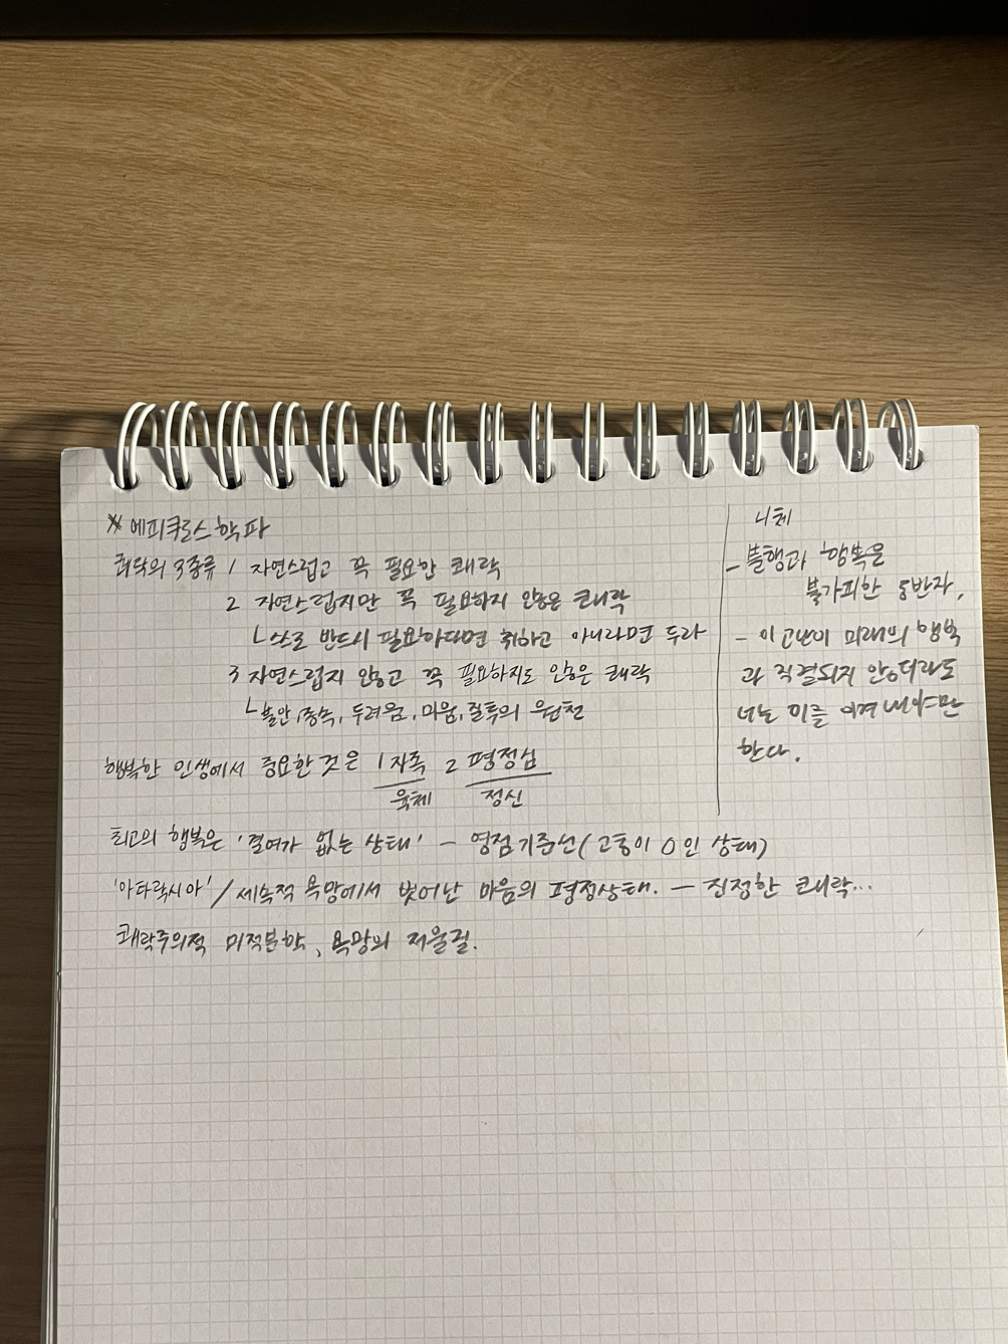 * 에피쿠로스 학파
쾌락의 3종류 1 자연스럽고 꼭 필요한 쾌락
2 자연스럽지만 꼭 필요하지 않은 쾌락
ㄴ스스로 반드시 필요하다면 취하고 아니라면 두라
3 자연스럽지 않고 꼭 필요하지도 않은 쾌락
ㄴ불안, 종속, 두려움, 미움, 질투의 원천
행복한 인생에서 중요한 것은 1 자족 2 평정심
육체 정신
최고의 행복은 '결여가 없는 상태' - 영점기준선(고통이 0인 상태)
'아타락시아' / 세속적 욕망에서 벗어난 마음의 평정상태. - 진정한 쾌락...
쾌락주의적 미적분학, 욕망의 저울질.
니체
- 불행과 행복은
불가피한 동반자.
- 이 고난이 미래의 행복
과 직결되지 않더라도
너는 이를 이겨내야만
한다.